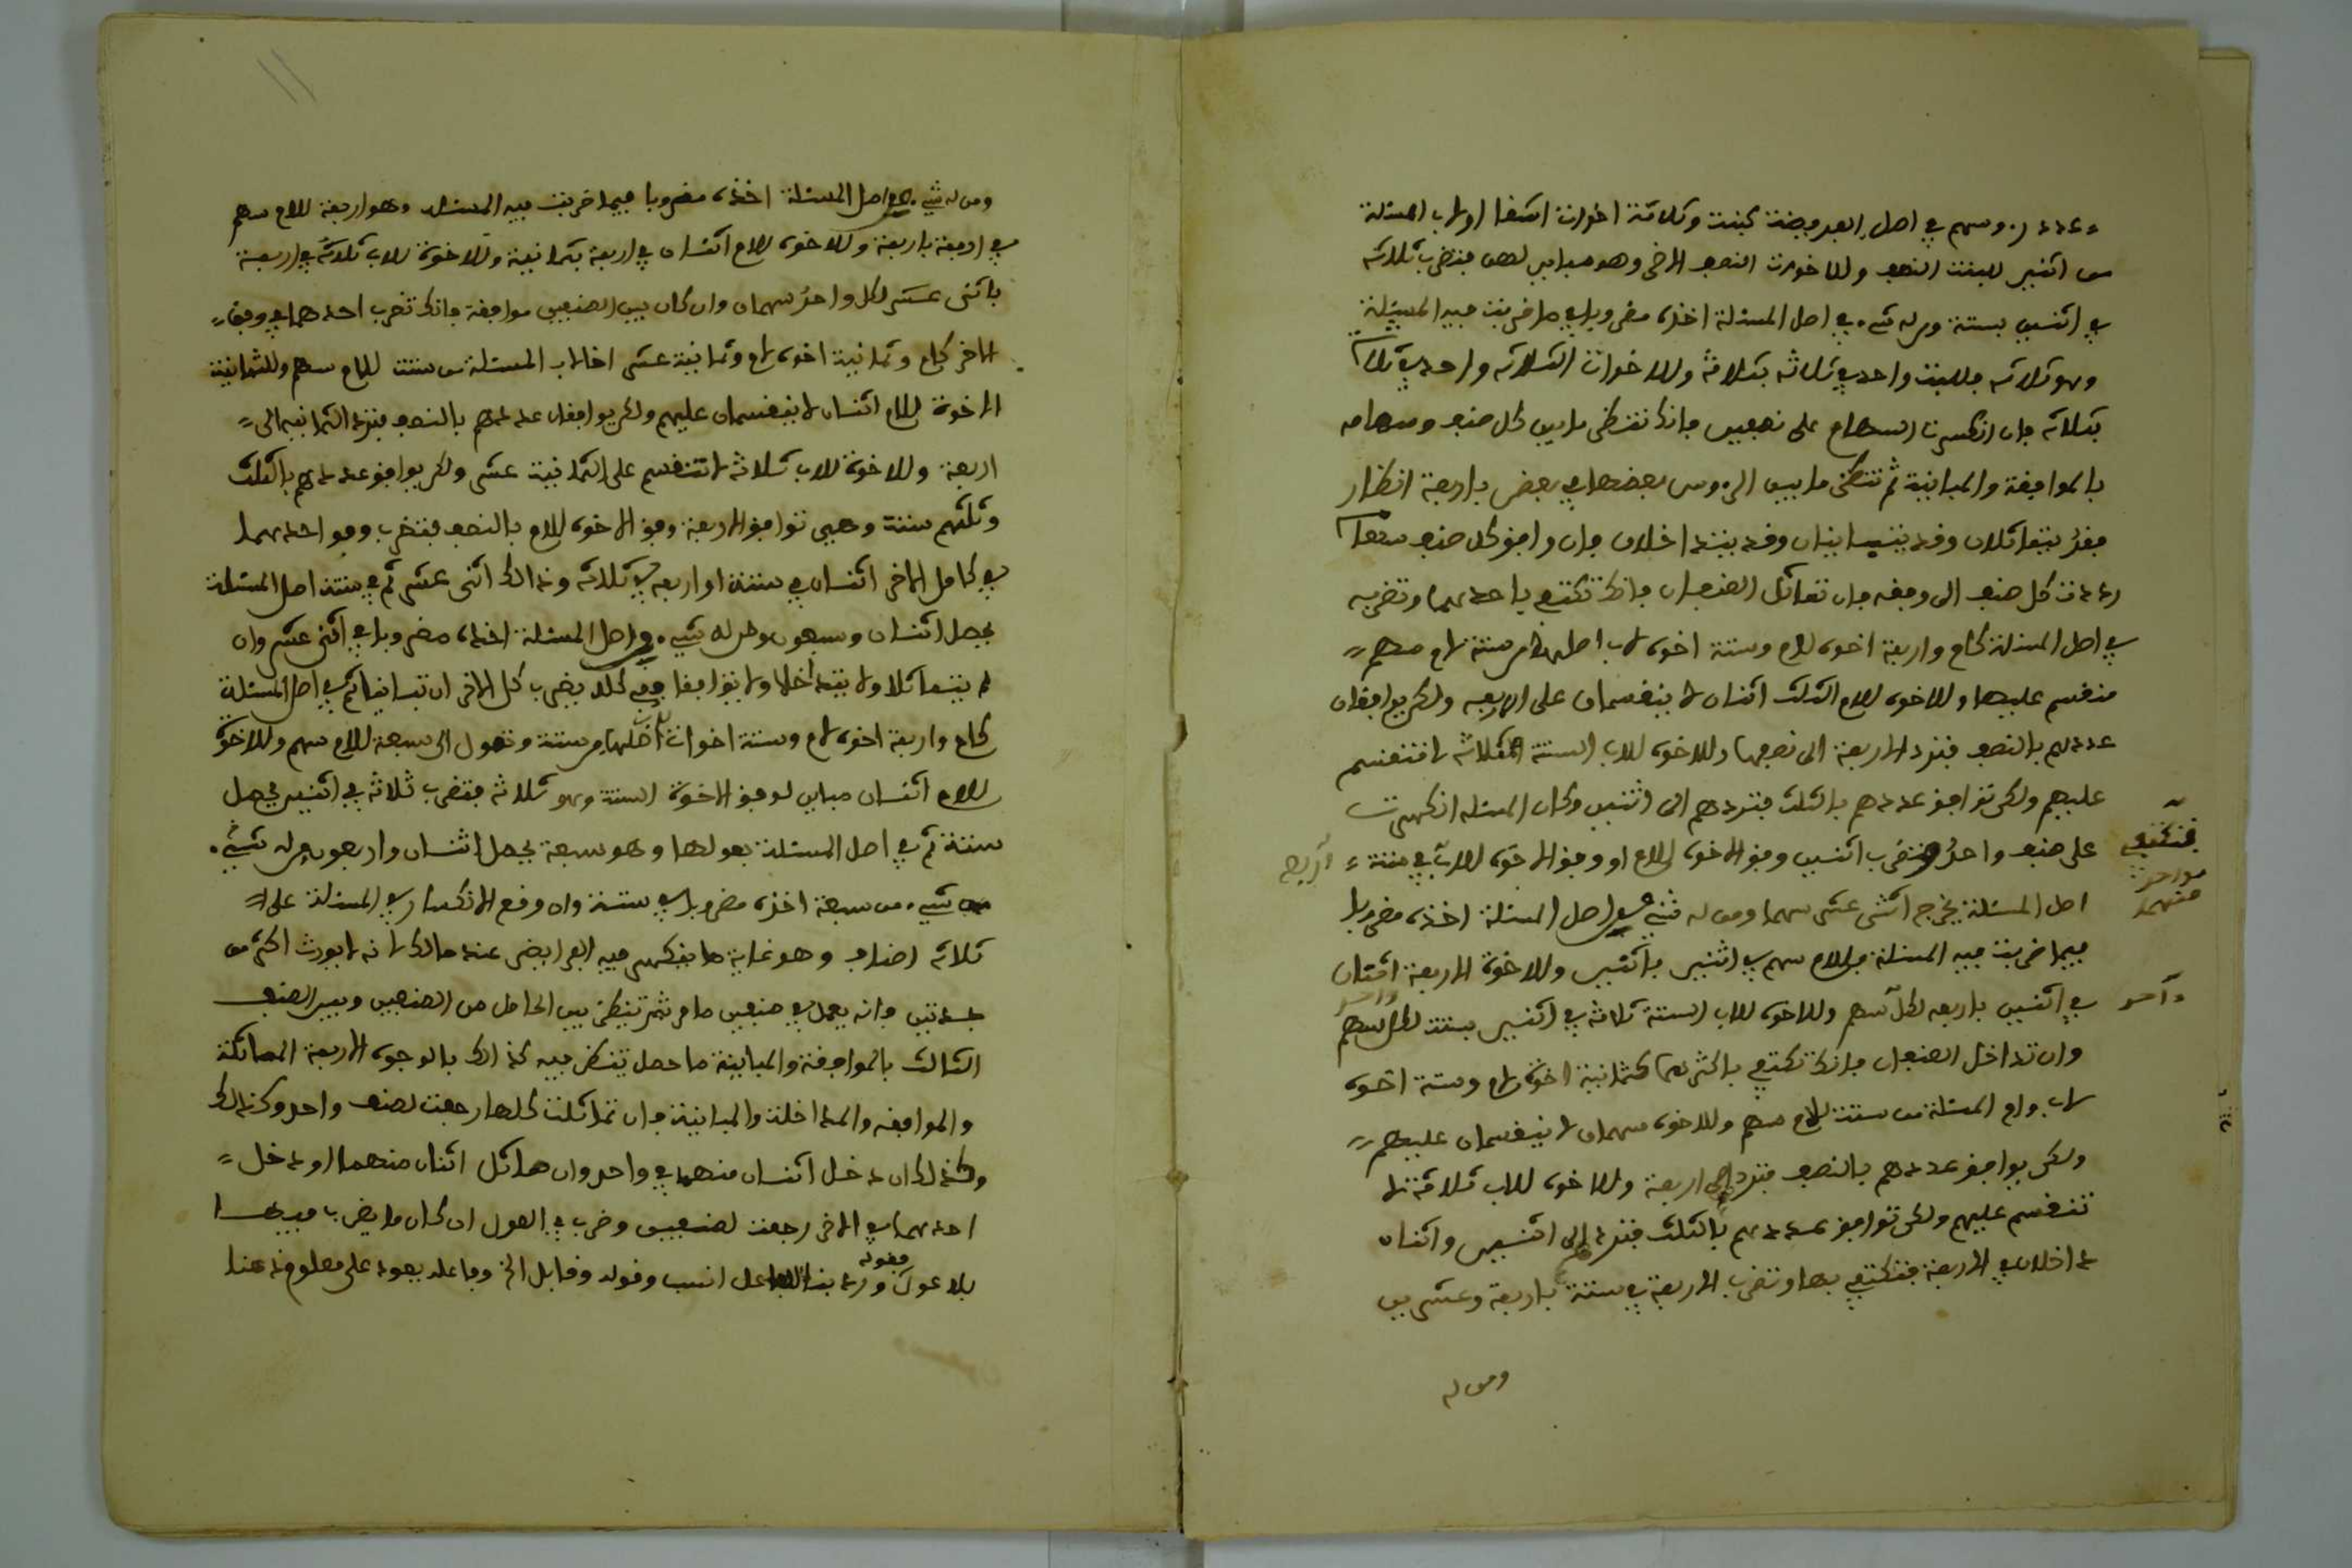 عدد رءوسهم في اصل الفريضة كبنت وثلاثة اخوات اشقا او لاب المسئلة
من اثنين للبنت النصف وللاخوات النصف الاخر وهو مباين لهن فتضرب ثلاثه
في اثنين بستة ومن له شيء في اصل المسئلة اخذه مضروبا في ما ضربت فيه المسئلة
وهو ثلاثه فللبنت واحد في ثلاثه بثلاثة وللاخوات الثلاثه واحد في ثلاثة
بثلاثه فان انكسرت السهام على صنفين فانك تنظر ما بين كل صنف وسهامه
بالموافقة والمباينة ثم تنظر ما بين الرءوس بعضها في بعض باربعة انظار
فقد يتماثلان وقد يتباينان وقد يتداخلان فان وافق كل صنف سهامه
رددت كل صنف الى وفقه فان تماثل الصنفان فانك تكتفي باحدهما وتضربه
في اصل المسئلة كام واربعة اخوة لام وستة اخوة لاب اصلها من ستة لام سهم
منقسم عليها وللاخوة للام الثلث اثنان لا ينقسمان على الاربعه ولكن يوافقان
عددهم بالنصف فترد الاربعة الى نصفها وللاخوة للاب الستة الثلاثة لا تنقسم
عليهم ولكن توافق عددهم بالثلث فتردهم الى اثنين وكان المسئلة انكسرت
على صنف واحد فتضرب اثنين وفق الاخوة للام او وفق الاخوة للاب في ستة
فتكتفي
بواحد
منهما
اصل المسئلة يخرج اثنى عشر سهما ومن له شيء في اصل المسئلة اخذه مضروبا
فيما ضربت فيه المسئلة فللام سهم في اثنين باثنين وللاخوة الاربعة اثنان
في اثنين باربعه لكل سهم وللاخوة للاب الستة ثلاثة في اثنين بستة لكل سهم
وان تداخل الصنفان فانك تكتفي باكثرهما كثمانية اخوة لام وستة اخوة
لاب وام المسئلة من ستة للام سهم وللاخوة سهمان لا ينقسمان عليهم
ولكن يوافق عددهم بالنصف فترد الى اربعة وللاخوة للاب ثلاثة لا
تنقسم عليهم ولكن توافق عددهم بالثلث فترد الى اثنين واثنان
داخلان في الاربعة فتكتفي بها وتضرب الاربعة في ستة باربعة وعشرين
ومن له
ومن له شيء في اصل المسئلة اخذه مضروبا فيما ضربت فيه المسئلة وهو اربعة للام سهم
في اربعة باربعة وللاخوة للام اثنان في اربعة بثمانية وللاخوة للاب ثلاثة في اربعة
باثنى عشر لكل واحد سهمان وان كان بين الصنفين موافقة فانك تضرب احدهما في وفق
الاخر كام وثمانية اخوة لام وثمانية عشر اخا لاب المسئلة من ستة للام سهم وللثمانية
الاخوة للام اثنان لا ينقسمان عليهم ولكن يوافقان عددهم بالنصف فترد الثمانية الى
اربعة وللاخوة للاب ثلاثة لا تنقسم على الثمانية عشر ولكن يوافق عددهم بالثلث
وثلثهم ستة وهي توافق الاربعة وفق الاخوة للام بالنصف فتضرب وفق احدهما
في كامل الاخر اثنان في ستة او اربعه في ثلاثة وذالك اثنى عشر ثم في ستة اصل المسئلة
يحصل اثنان وسبعون ومن له شيء من اصل المسئلة اخذه مضروبا في اثنى عشر وان
لم يتماثلا ولا يتداخلا ولا يتوافقا ففي كله يضرب كل الاخر ان تباينا ثم في اصل المسئلة
كام واربعة اخوة لام وستة اخوات لاب اصلها من ستة وتعول الى سبعة للام سهم وللاخوة
للام اثنان مباين لوفق الاخوة الستة وهو ثلاثة فتضرب ثلاثة في اثنين يحصل
ستة ثم في اصل المسئلة بعولها وهو سبعة يحصل اثنان واربعون من له شيء
من سبعة اخذه مضروبا في ستة وان وقع الانكسار في المسئلة على
ثلاثة اصناف وهو غاية ما ينكسر فيه الفرايض عند مالك لانه لا يورث اكثر من
جدتين فانه يعمل في صنفين ما مر ثم تنظر بين الحاصل من الصنفين وبين الصنف
الثالث بالموافقة والمباينة ما حصل ينظر فيه كذالك بالوجوه الاربعة المماثلة
والموافقه والمداخلة والمباينة فان تماثلت كلها رجعت لصنف واحد وكذلك
وكذلك ان دخل اثنان منهما في واحد وان ماثل اثنان منهما او دخل
احدهما في الاخر رجعت لصنفين وضرب في العول ان كان ما يضرب فيها
بلا عول وفي بناء الفاعل انسب وقوله وقابل الخ وفاعله يعود على معلوم ذهنا